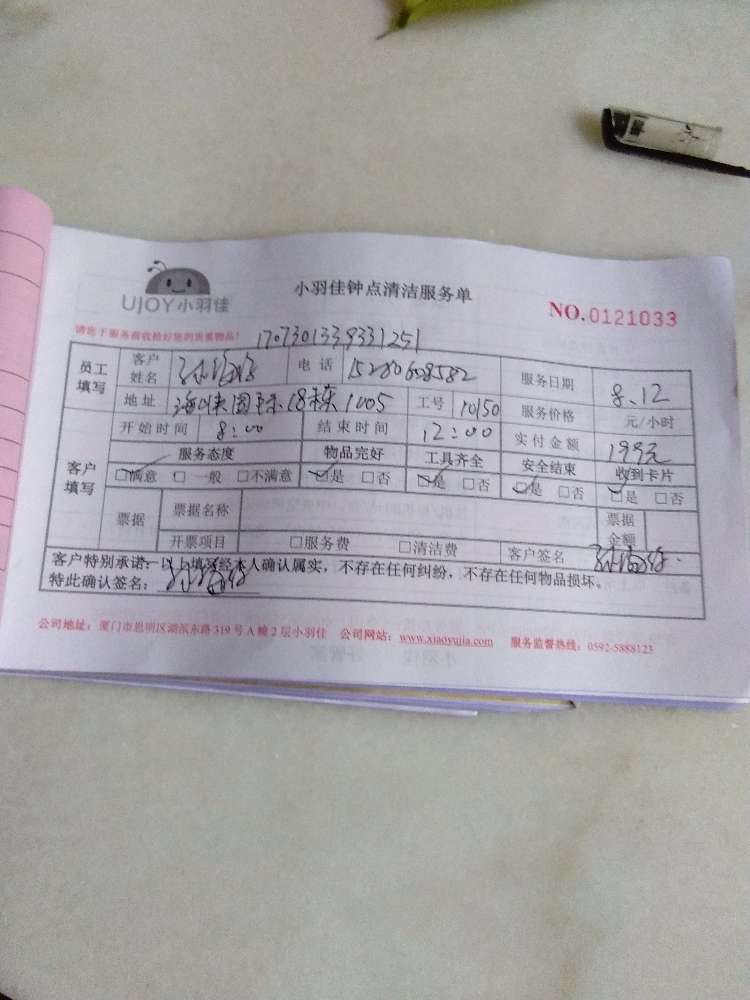 UJOY小羽佳
小羽佳钟点清洁服务单
NO.0121033
请您于服务前收拾好您的贵重物品!
1707301339331251
员工填写 客户姓名 电话 15280608582 服务日期 8.12
地址 海峡国际18栋1005 工号 10150 服务价格 元/小时
开始时间 8:00 结束时间 12:00 实付金额 199元
客户填写 服务态度 物品完好 工具齐全 安全结束 收到卡片
☑满意 □一般 □不满意 ☑是 □否 ☑是 □否 ☑是 □否 ☑是 □否
票据 票据名称 票据金额
开票项目 □服务费 □清洁费 客户签名
客户特别承诺:以上填写经本人确认属实,不存在任何纠纷,不存在任何物品损坏。
特此确认签名:
公司地址:厦门市思明区湖滨东路319号A幢2层小羽佳 公司网站:www.xiaoyujia.com 服务监督热线:0592-5888123